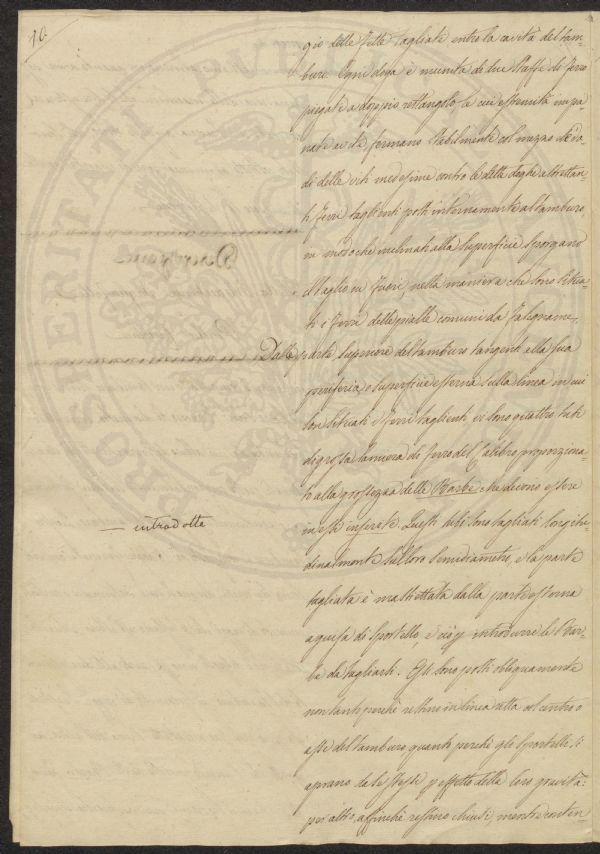 10.
gio delle fette tagliate entro la cavità del tam-
buro. Ogni doga è munita di due Staffe di ferro
piegate a doppio rettangolo le cui estremità impa-
nate a vite fermano stabilmente col mezzo de' da-
di delle viti medesime contro le dette doghe altrettan-
ti ferri taglienti posti internamente al tamburo,
in modo che inclinati alla Superficie sporgano
il taglio in fuori, nella maniera che sono situa-
ti i ferri delle pialle comuni da falegname.
Dalla parte Superiore del tamburo tangenti alla sua
periferia, o superficie esterna sulla linea in cui
son situati i ferri taglienti vi sono quattro tubi
di grossa lamiera di ferro del Calibro proporziona-
to alla grossezza delle Barbe che devono essere
in essi inserite. Questi tubi sono tagliati longitu-
dinalmente sul loro Semidiametro, e la parte
tagliata è mastiettata dalla parte esterna
a guisa di Sportello, e ciò p introdurre le Bar-
be da tagliarsi. Essi sono posti obliquamente
non tanto perchè restino in linea retta col centro o
asse del tamburo quanto perchè gli Sportelli si
aprano da se stessi p effetto della loro gravità:
per altro, affinchè restino chiusi, mentre conten
— introdotta